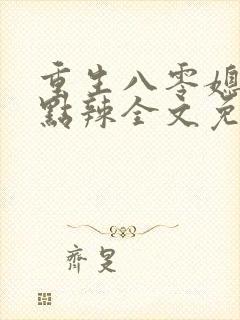 重生八零媳
點辣全文免
齊是